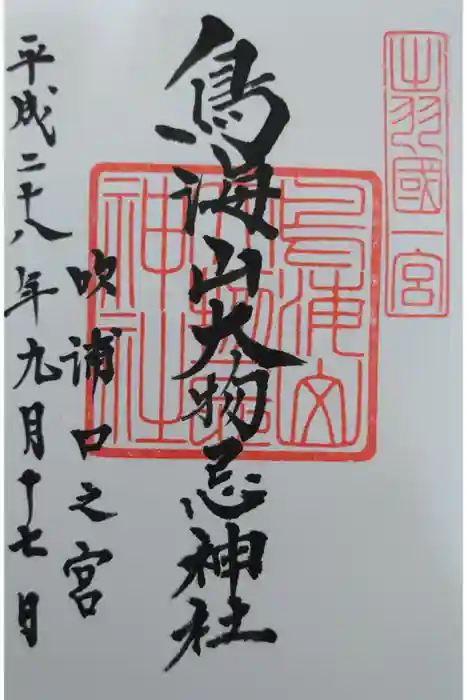 出羽國一宮
鳥海山大物忌神社
鳥海山
大物忌
神社
吹浦口之宮
平成二十八年九月十七日